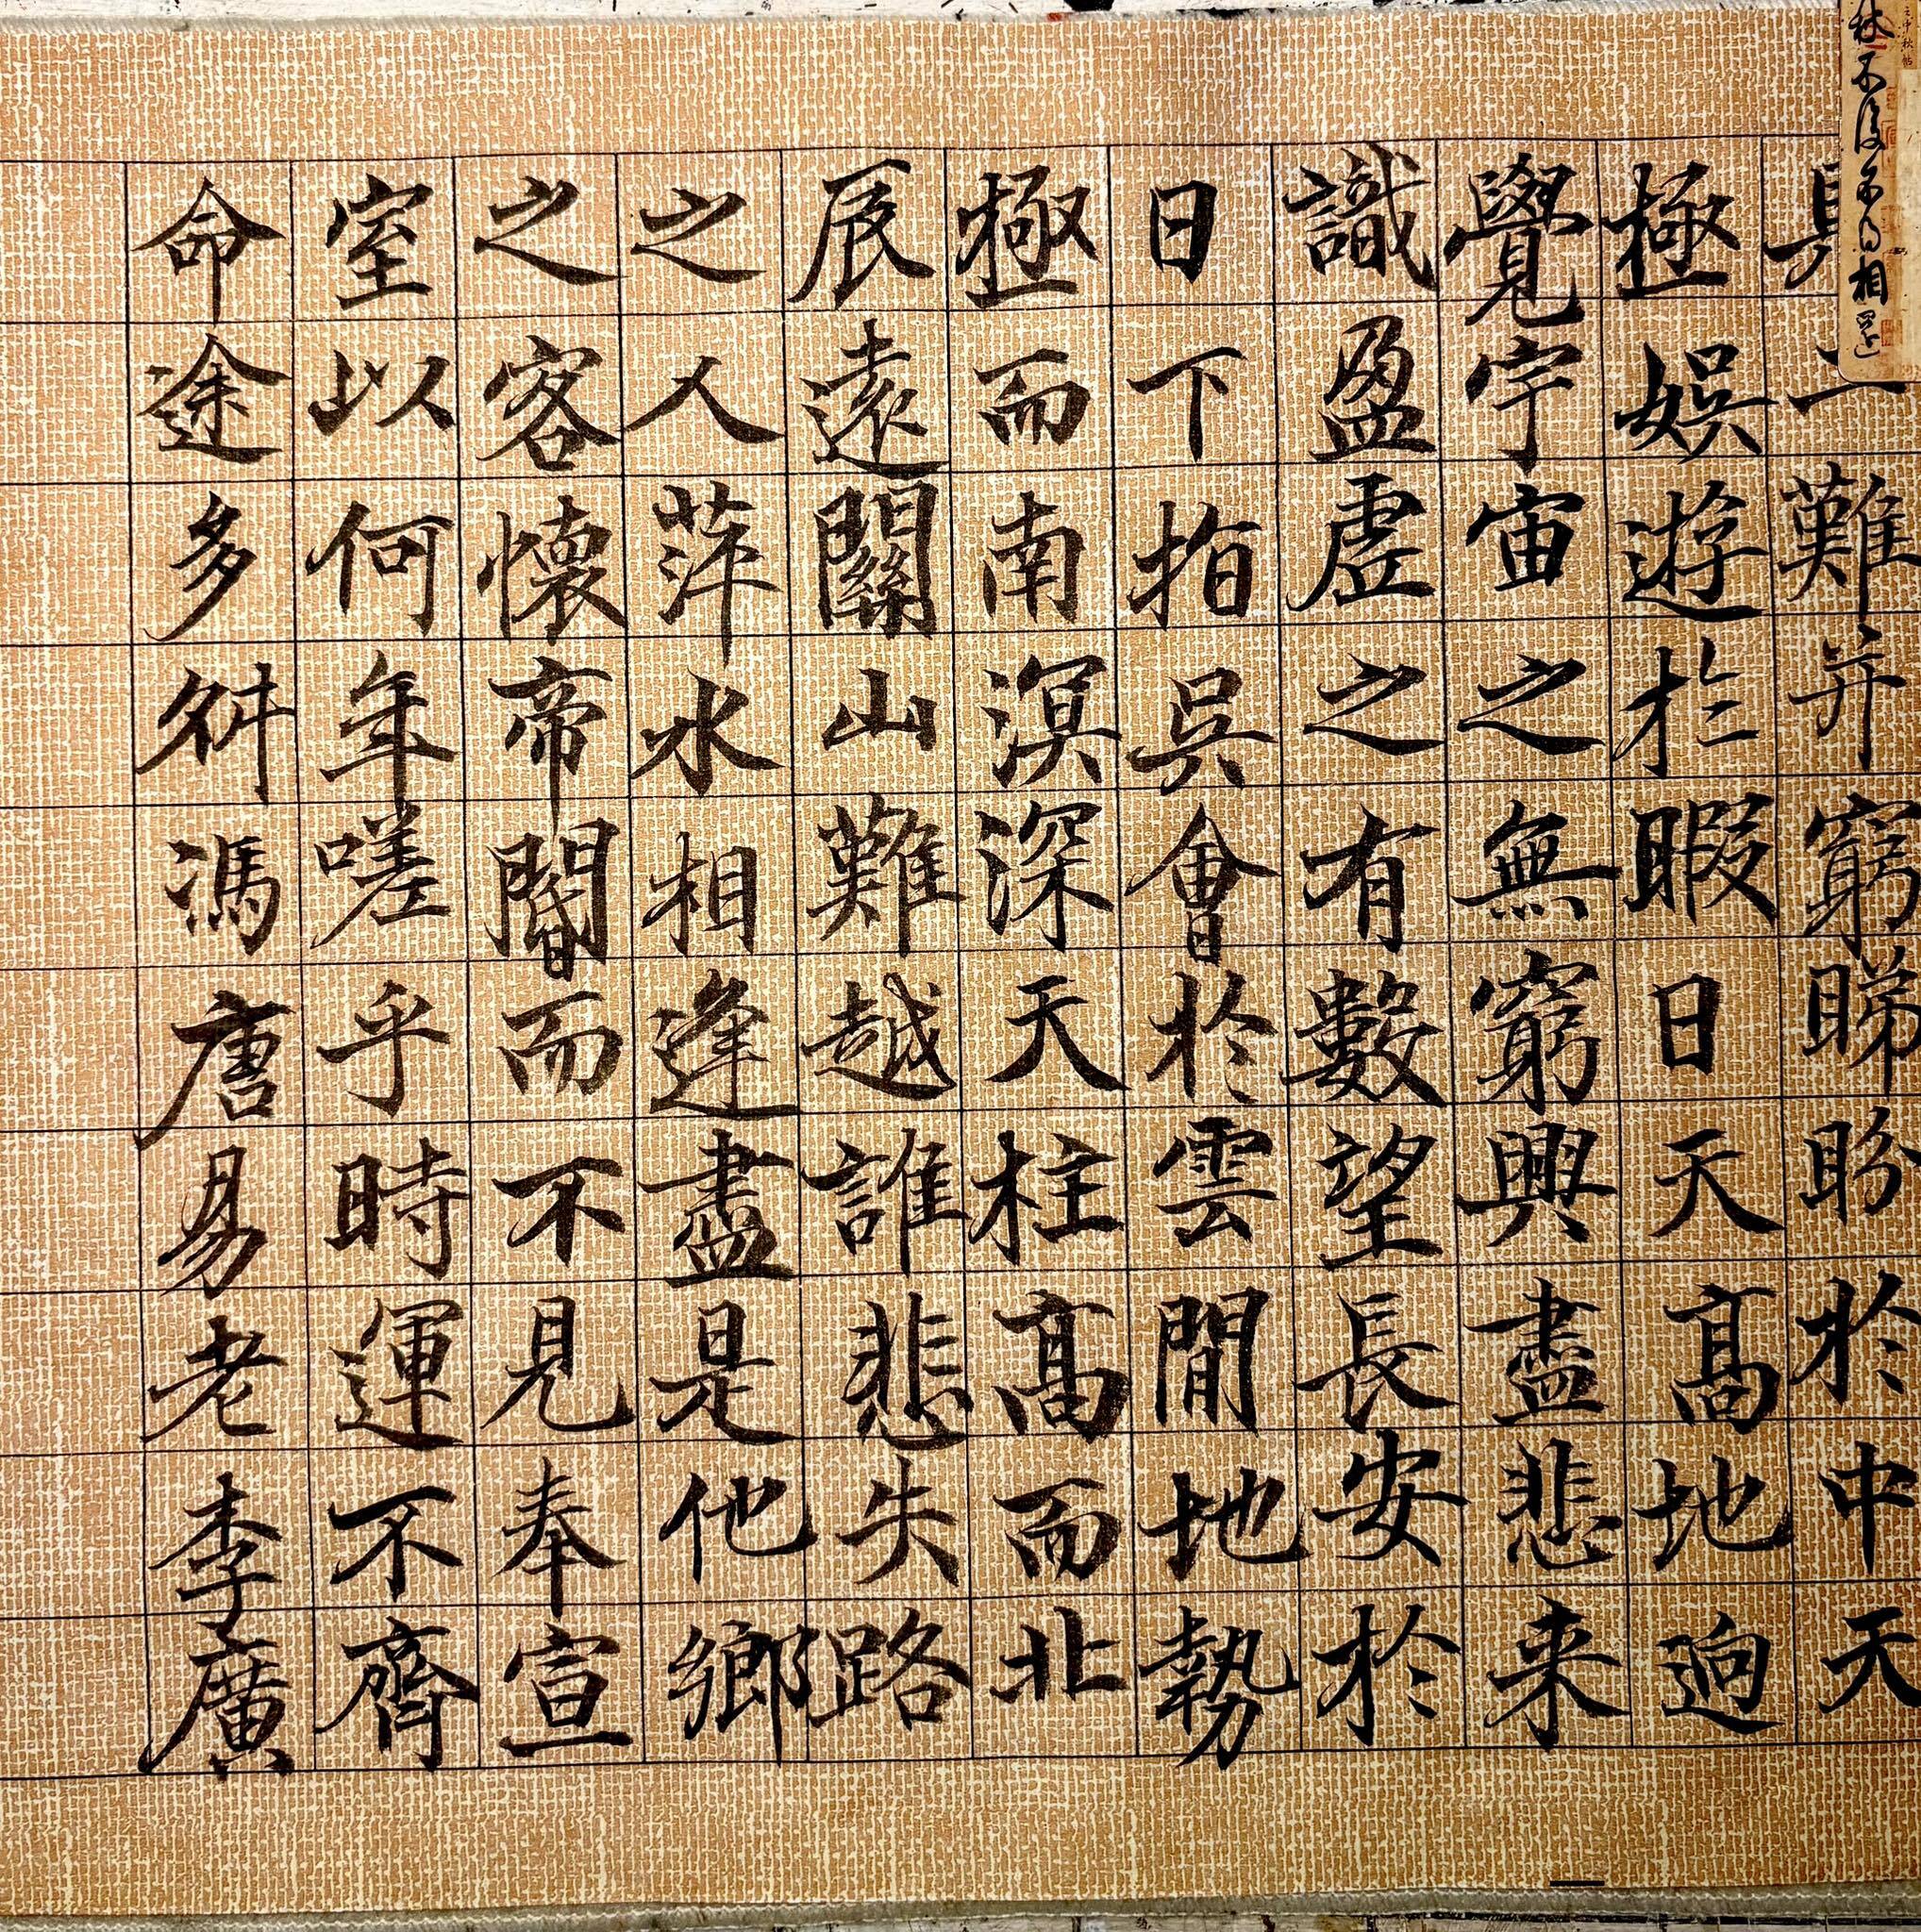 具二難并窮睇眄於中天
極娛遊於暇日天高地迥
覺宇宙之無窮興盡悲来
識盈虛之有數望長安於
日下指吳會於雲間地勢
極而南溟深天柱高而北
辰遠關山難越誰悲失路
之人萍水相逢盡是他鄉
之客懷帝閽而不見奉宣
室以何年嗟乎時運不齊
命途多舛馮唐易老李廣
不復不得相